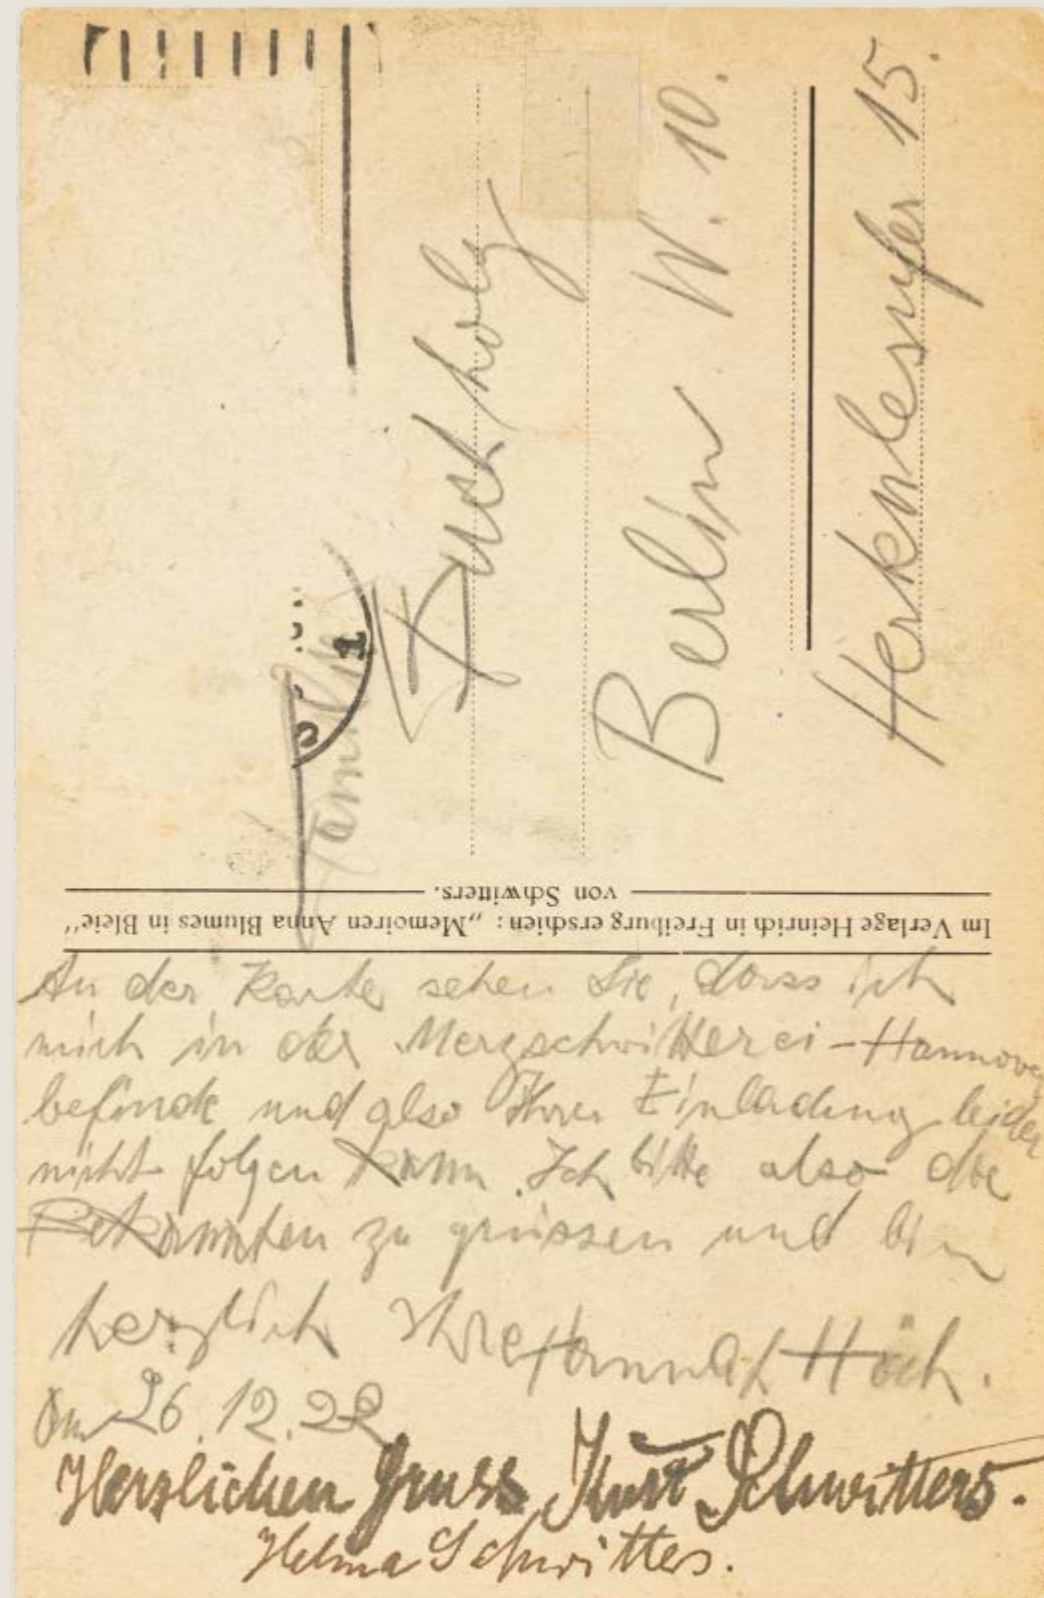 Familie
Buchholz
Berlin W. 10.
Herkulesufer 15.
Im Verlage Heinrich in Freiburg erschien: „Memoiren Anna Blumes in Bleie“
von Schwitters.
An der Karte sehen Sie, dass ich
mich in der Merzschwitterei-Hannover
befinde und also Ihrer Einladung leider
nicht folgen kann. Ich bitte also die
Bekannten zu grüssen und bin
herzlich Ihre Hannah Höch.
Am 26.12.22
Herzlichen Gruss Kurt Schwitters.
Helma Schwitters.